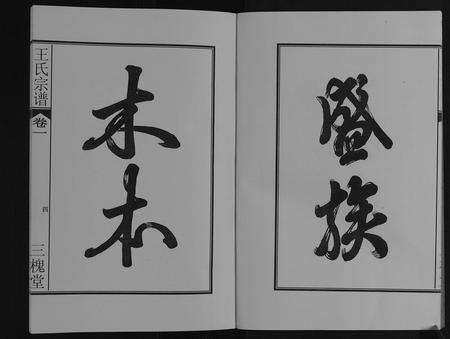 盛族
木本
王氏宗谱
卷一
四
三槐堂